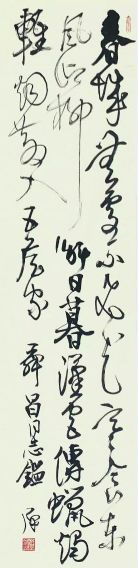 春城無處不飛花寒食東
風御柳斜日暮漢宮傳蠟燭
輕煙散入五侯家 昌同志鑑